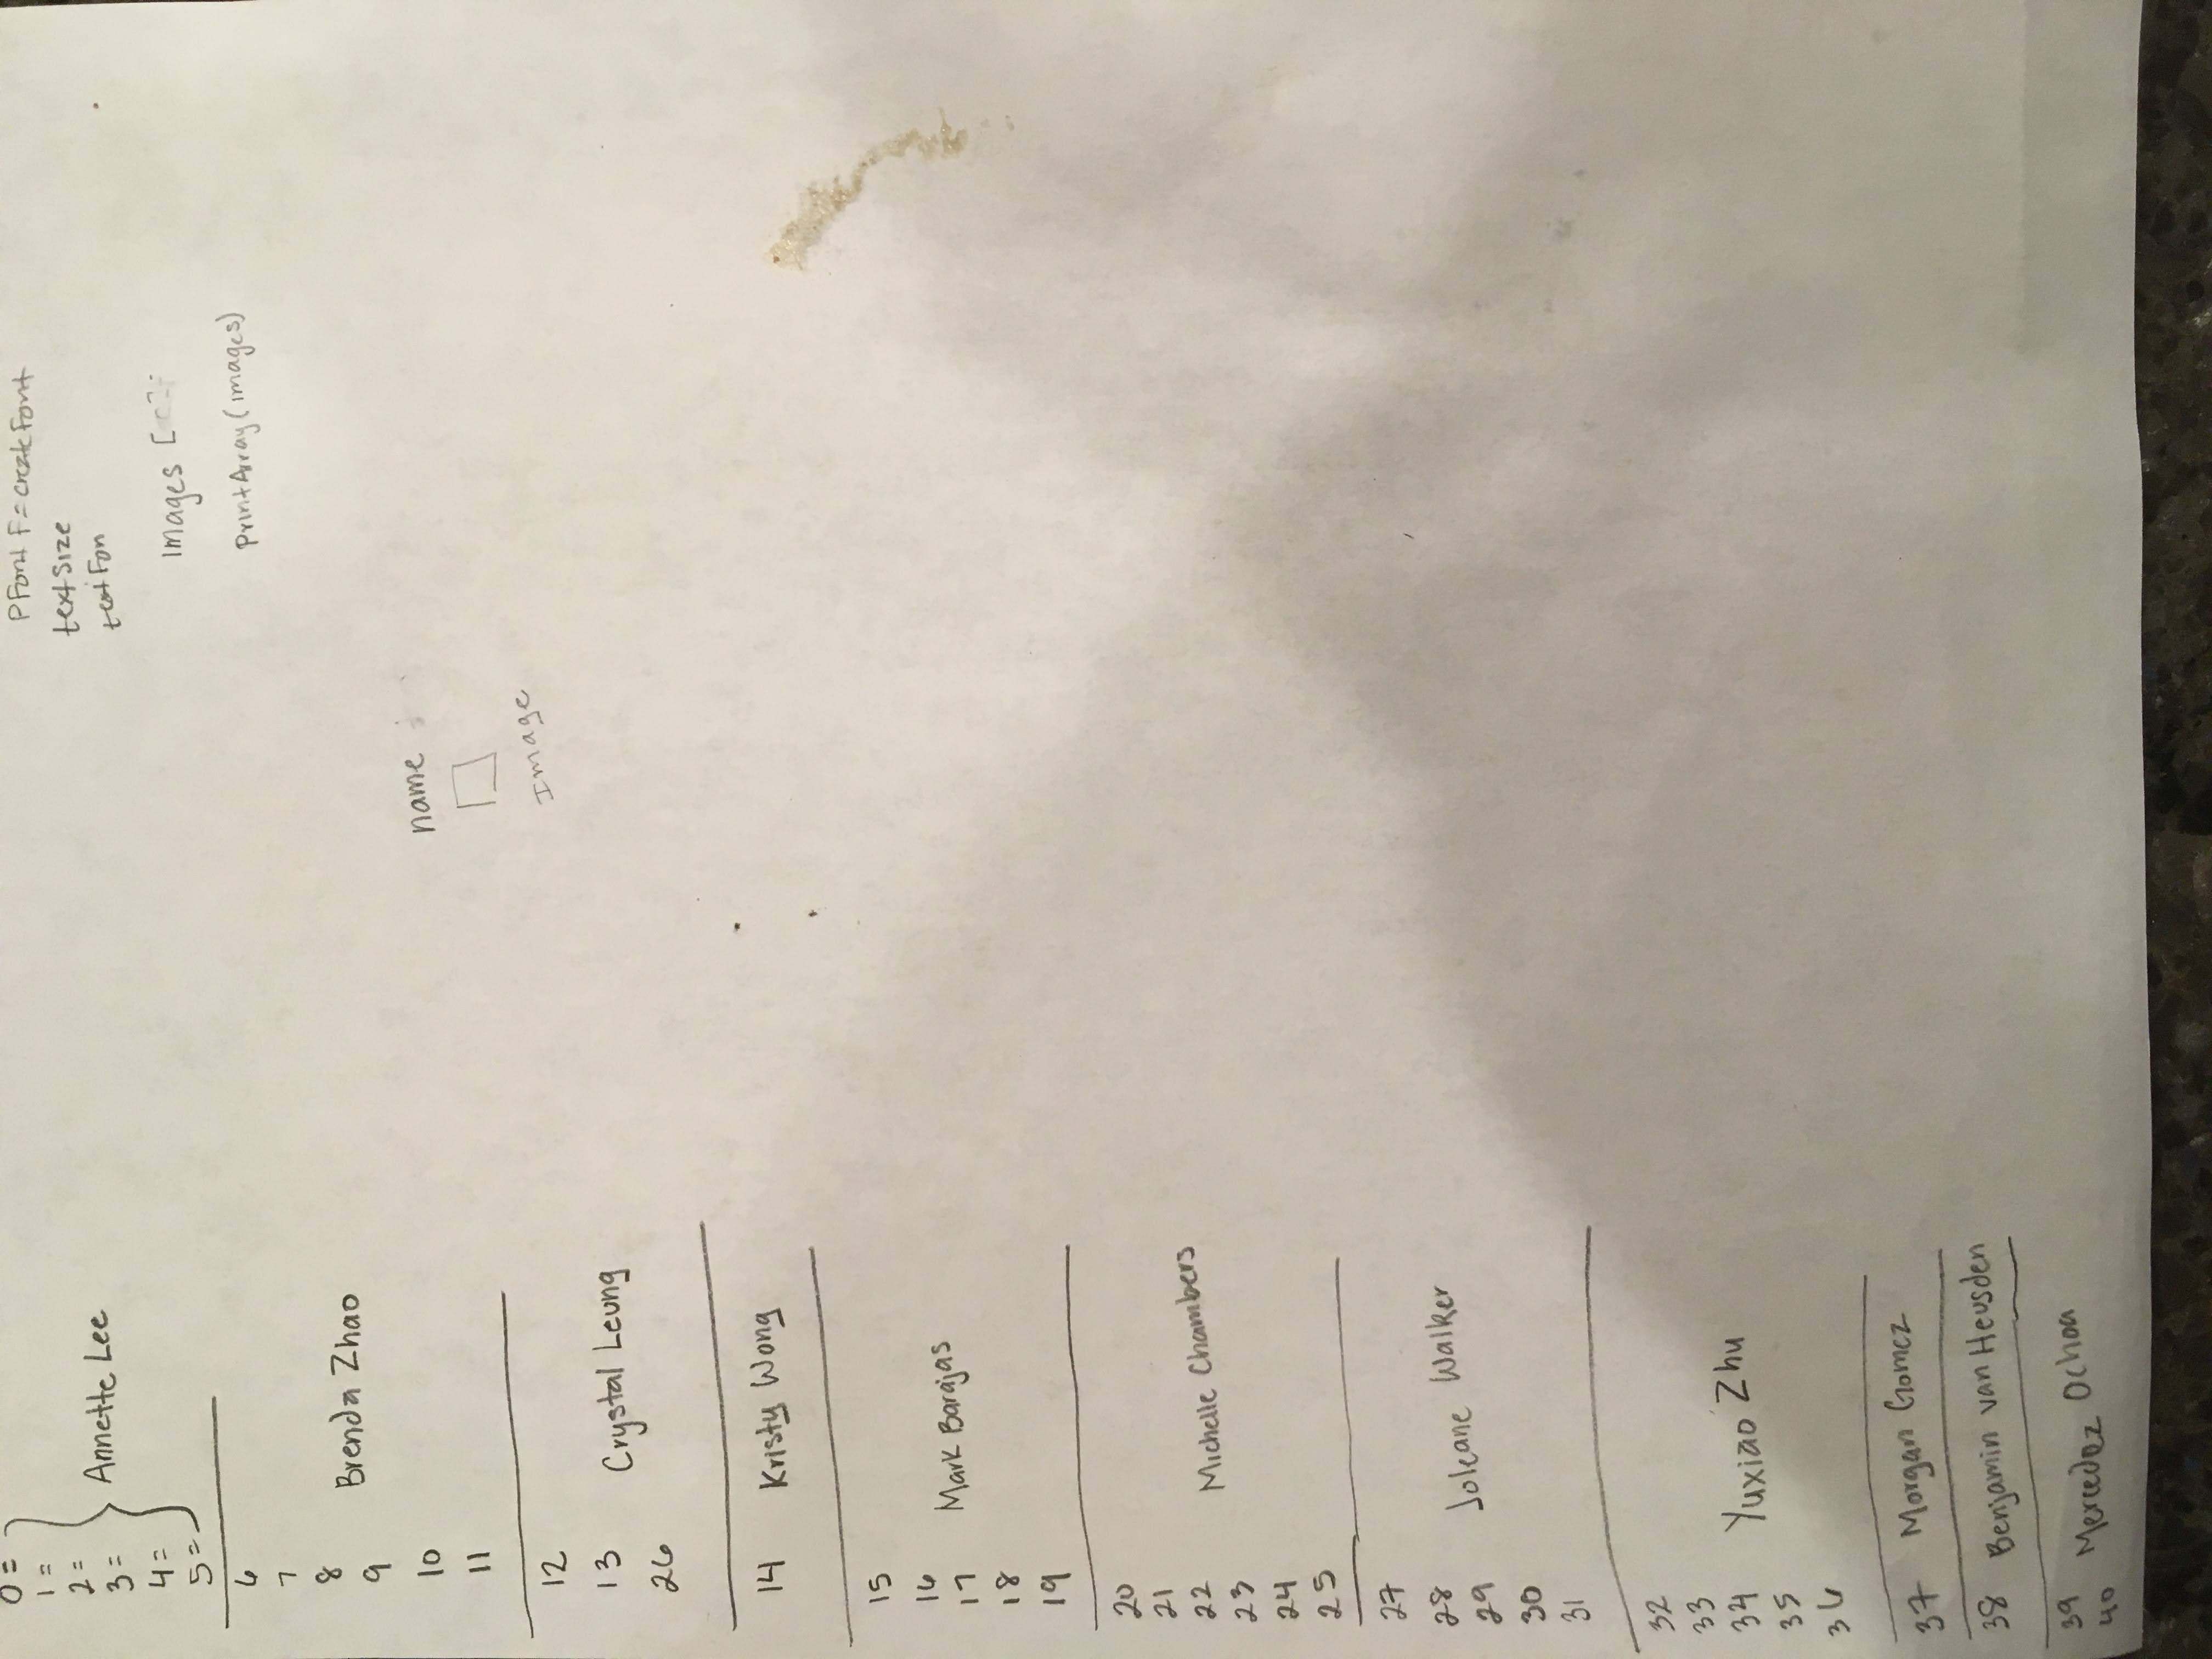 0 =
1 =
2 =
3 =
4 =
5 =
Annette Lee
6
7
8
9
10
11
Brenda Zhao
12
13
26
Crystal Leung
14 Kristy Wong
15
16
17
18
19
Mark Barajas
20
21
22
23
24
25
Michelle Chambers
27
28
29
30
31
Joleane Walker
32
33
34
35
36
Yuxiao Zhu
37 Morgan Gomez
38 Benjamin van Heusden
39
40
Mercedez Ochoa
PFont F = createFont
textSize
textFon
Images [
PrintArray(images)
name
Image